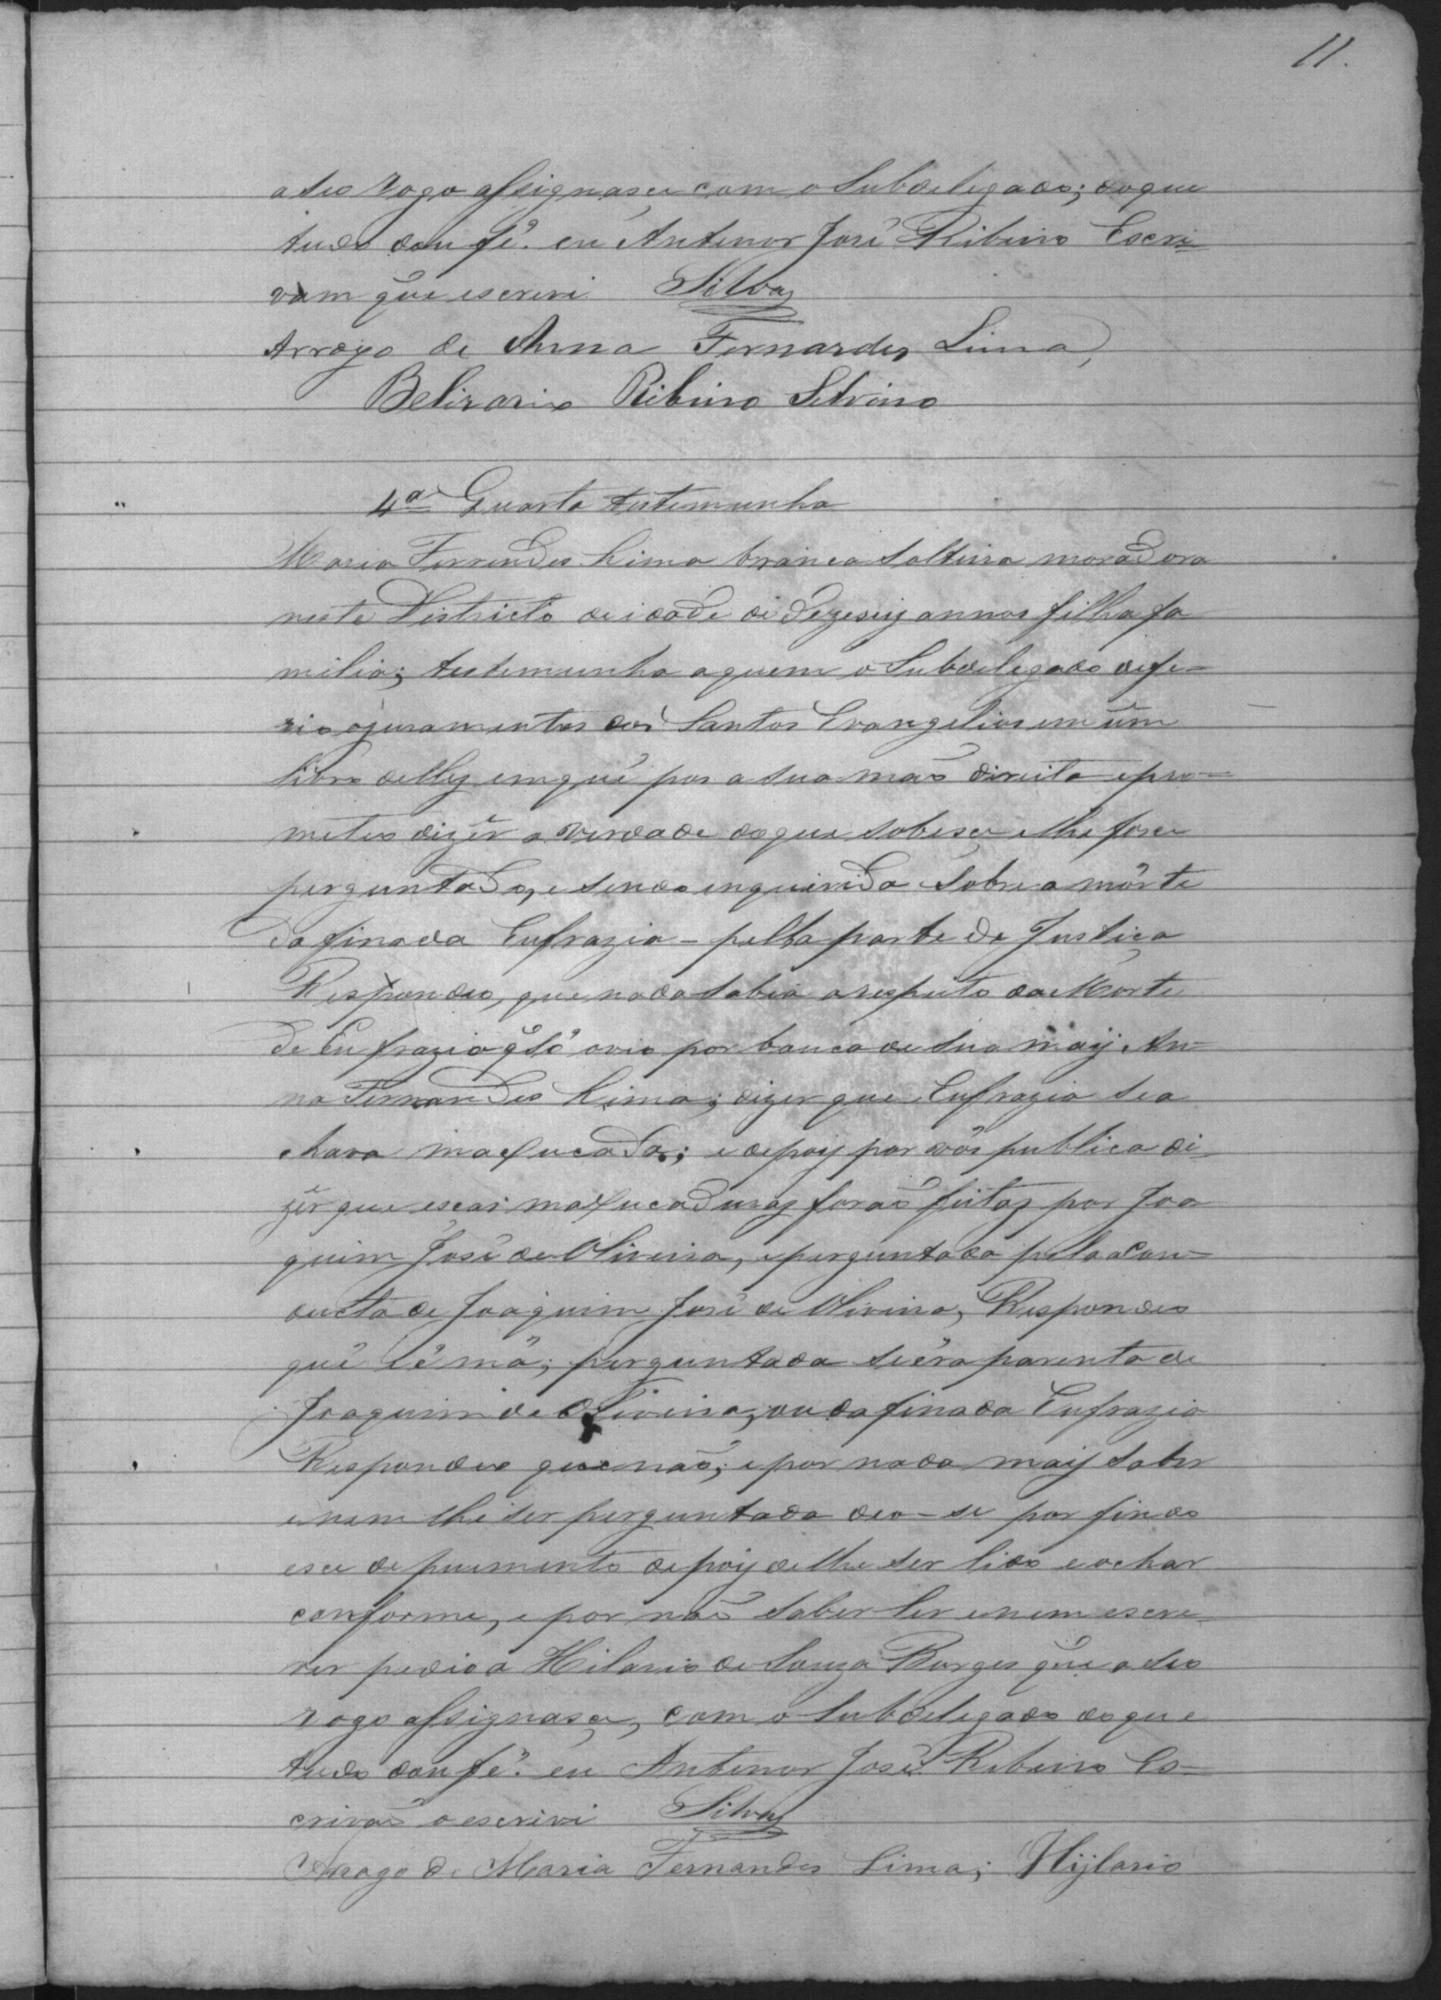 11.
a seo rogo assignasce com o Subdelegado; doque
tudo dou fé. eu Antenor José Ribeiro Escri
vam que escrevi Silva
Arrogo de Anna Fernandes Lima,
Belizario Ribeiro Silvino
4ª Quarta testemunha
Maria Fernndes Lima branca solteira moradora
neste Districto de idade di dezeseiz annos filha fa
milia; testemunha aquem o Subdelegado defe-
rio ojuramentos dos Santos Evangelios em um
livro delley emque pos a sua mão direita epro-
meteo dizer a verdade doque sobesce elhe fosce
perguntado, e sendo enquirida sobre a morte
da finada Eufrazia - pella parte da Justiça
Respondeo, que nada sabia arespeito da Morte
de Eufrazia q só ovio por bouca de sua maij An=
na Fernandes Lima; dizer que Eufrazia sea
chava maxucada; e depoij por vós publica di
zer que escas maxucaduraz forão feitaz por Joa
quim José de Oliveira, eperguntada pela acon-
ducta de Joaquim José de Oliveira, Respondeo
que é má; perguntada se éra parenta de
Joaquim de Oliveira, ou da finada Eufrazia
Respondeo que não; epor nada maij saber
enem lhe ser perguntada deo-se por findo
esce depuimento depoij delhe ser lido eachar
conforme, epor não saber ler enem escre
ver pedio a Hilario de Souza Borges que a seo
rogo assignasce, com o Subdelegado doque
tudo dou fé. eu Antenor José Ribeiro Es-
crivão o escrevi Silva
Arrogo de Maria Fernandes Lima; Hijlario